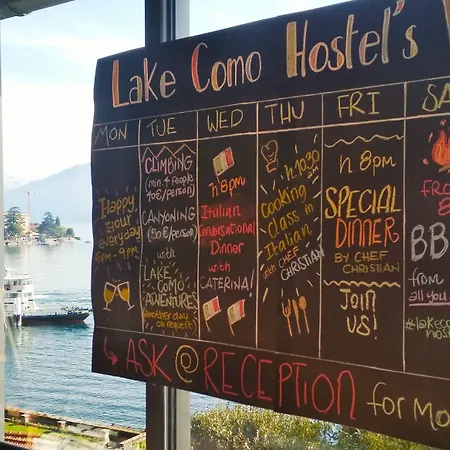 Lake Como Hostel's
MON TUE WED THU FRI
Happy
Hour
everyday
6pm-9pm
CLIMBING
(min. 4 people
40€/person)
CANYONING
(50€/person)
with
LAKE
COMO
ADVENTURES
another day
on request
h 8pm
Italian
Conversational
Dinner
with
CATERINA!
h. 10.30
am
Cooking
Class in
Italian
with CHEF
CHRISTIAN
h 8pm
SPECIAL
DINNER
BY CHEF
CHRISTIAN
JOIN
US!
from
all you
ASK @ RECEPTION for